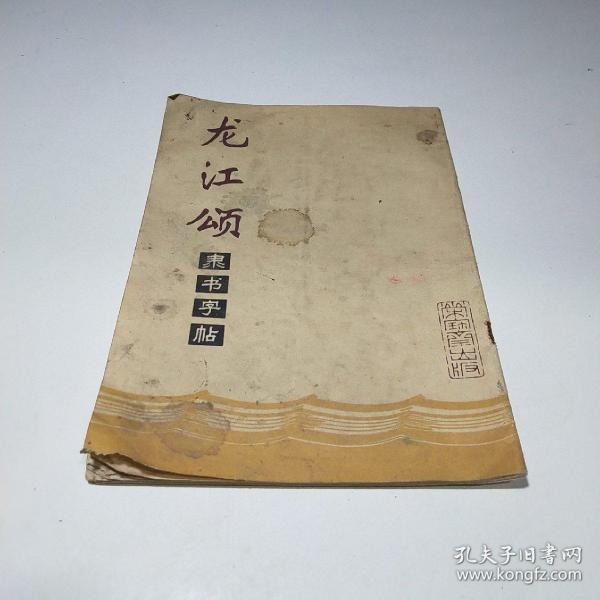 龙江颂
隶书字帖
荣宝斋出版
孔夫子旧书网
www.kongfz.com